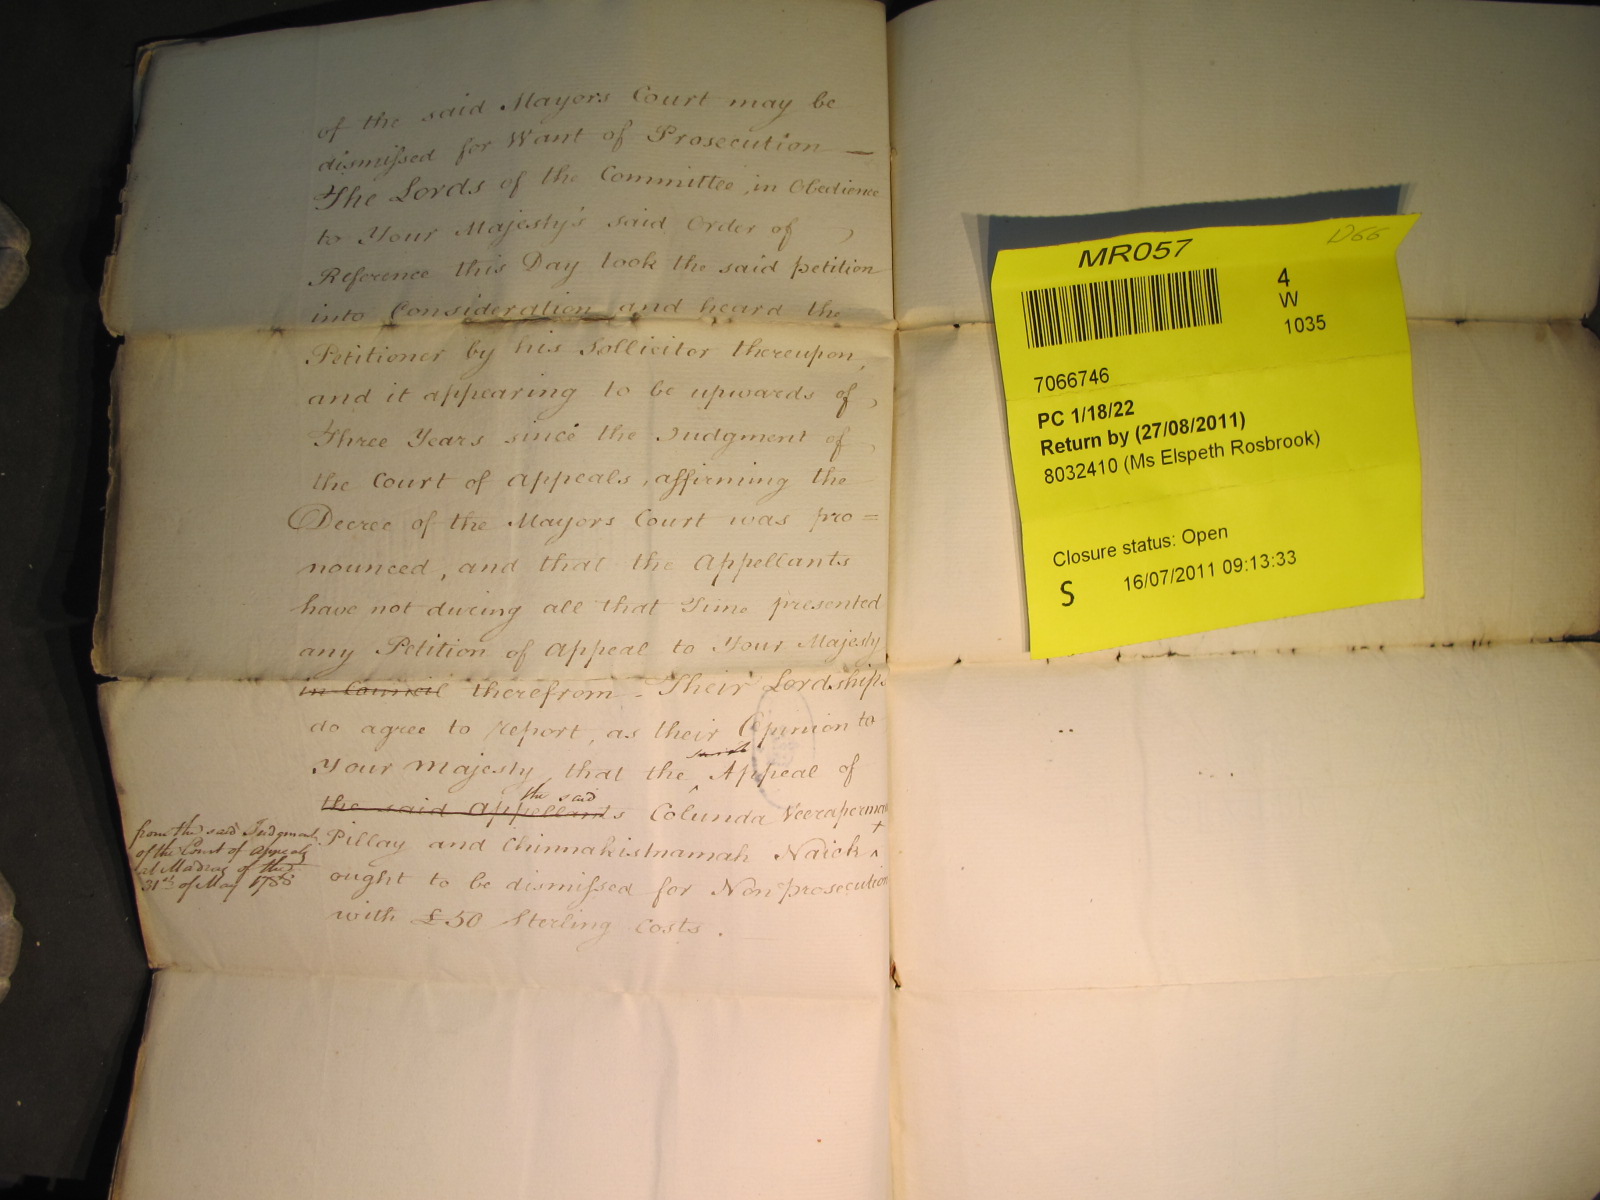 of the said Mayors Court may be
dismissed for Want of Prosecution —
The Lords of the Committee, in Obedience
to Your Majesty's said Order of
Reference this Day took the said petition
into Consideration and heard the
Petitioner by his Sollicitor thereupon,
and it appearing to be upwards of
Three Years since the Judgment of
the Court of Appeals, affirming the
Decree of the Mayors Court was pro=
nounced, and that the Appellants
have not during all that Time presented
any Petition of Appeal to Your Majesty
in Council therefrom - Their Lordships
do agree to report, as their Opinion to
said
Your Majesty, that the ^ Appeal of
the said
the said Appellants Colunda Veeraperma
Pillay and Chinnakistnamah Naick ^
ought to be dismissed for Non prosecution
with £50 Sterling Costs.
from the said Judgment
of the Court of Appeals
at Madras of the
31st of May
MR057
D66
4
W
1035
7066746
PC 1/18/22
Return by (27/08/2011)
8032410 (Ms Elspeth Rosbrook)
Closure status: Open
S 16/07/2011 09:13:33